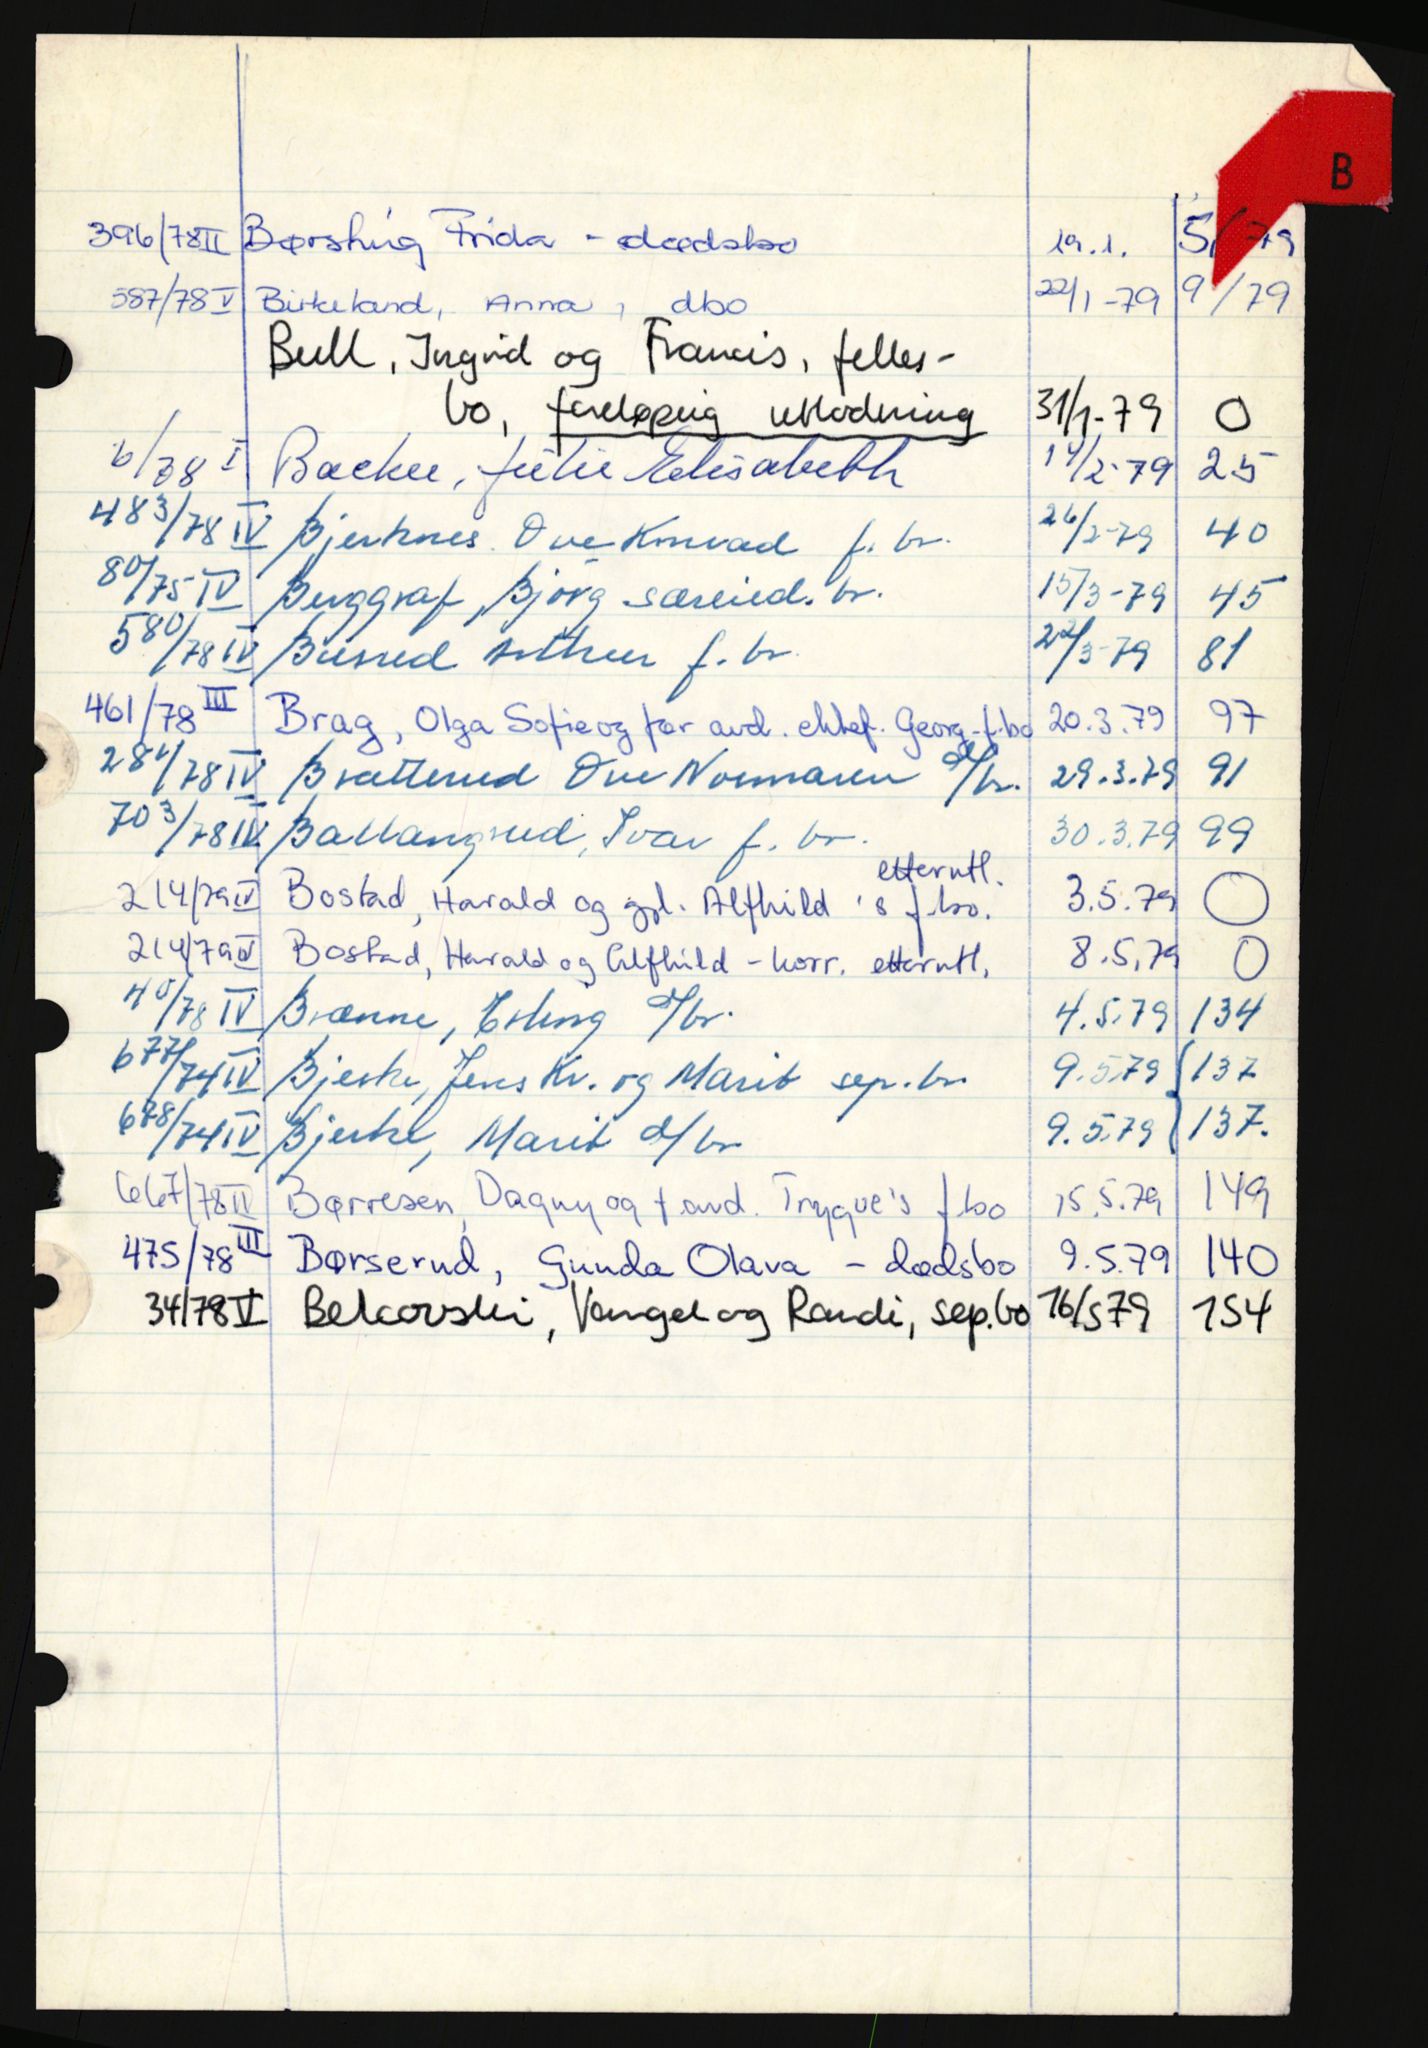 B
396/78 II Børshig Frida - dødsbo 19.1. 5/79
587/78 V Birkeland, Anna, dbo 22/1-79 9/79
Bull, Ingrid og Francis, felles-
bo, foreløpig utlodning 31/1-79 0
6/78 I Backer, Julie Elisabeth 14/2-79 25
483/78 IV Bjerknes Ove Konrad f. br. 26/2-79 40
80/75 IV Berggraf, Bjørg særeied. br. 15/3-79 45
580/78 IV Buerud f. br. 22/3-79 81
461/78 III Brag, Olga Sofie og før avd. ektef. Georg - f.bo 20.3.79 97
/78 IV Bratterud Ove Normann d/br. 29.3.79 91
703/78 IV Ballangrud, Ivar f. br. 30.3.79 99
etterutl.
214/79 IV Bostad, Harald og gjl. Alfhild 's f.bo. 3.5.79 0
214/79 IV Bostad, Harald og Alfhild - korr. etterutl. 8.5.79 0
/78 IV Brænne, Erling d/br. 4.5.79 134
677/74 IV Bjerke, Jens Kr. og Marit sep. br. 9.5.79 137
678/74 IV Bjerke, Marit d/br 9.5.79 137.
667/78 II Børresen, Dagny og f. avd. Trygve's f.bo 15.5.79 149
475/78 III Børserud, Gunda Olava - dødsbo 9.5.79 140
34/78 V Belcovski, Vangel og Randi, sep.bo 16/5 79 154